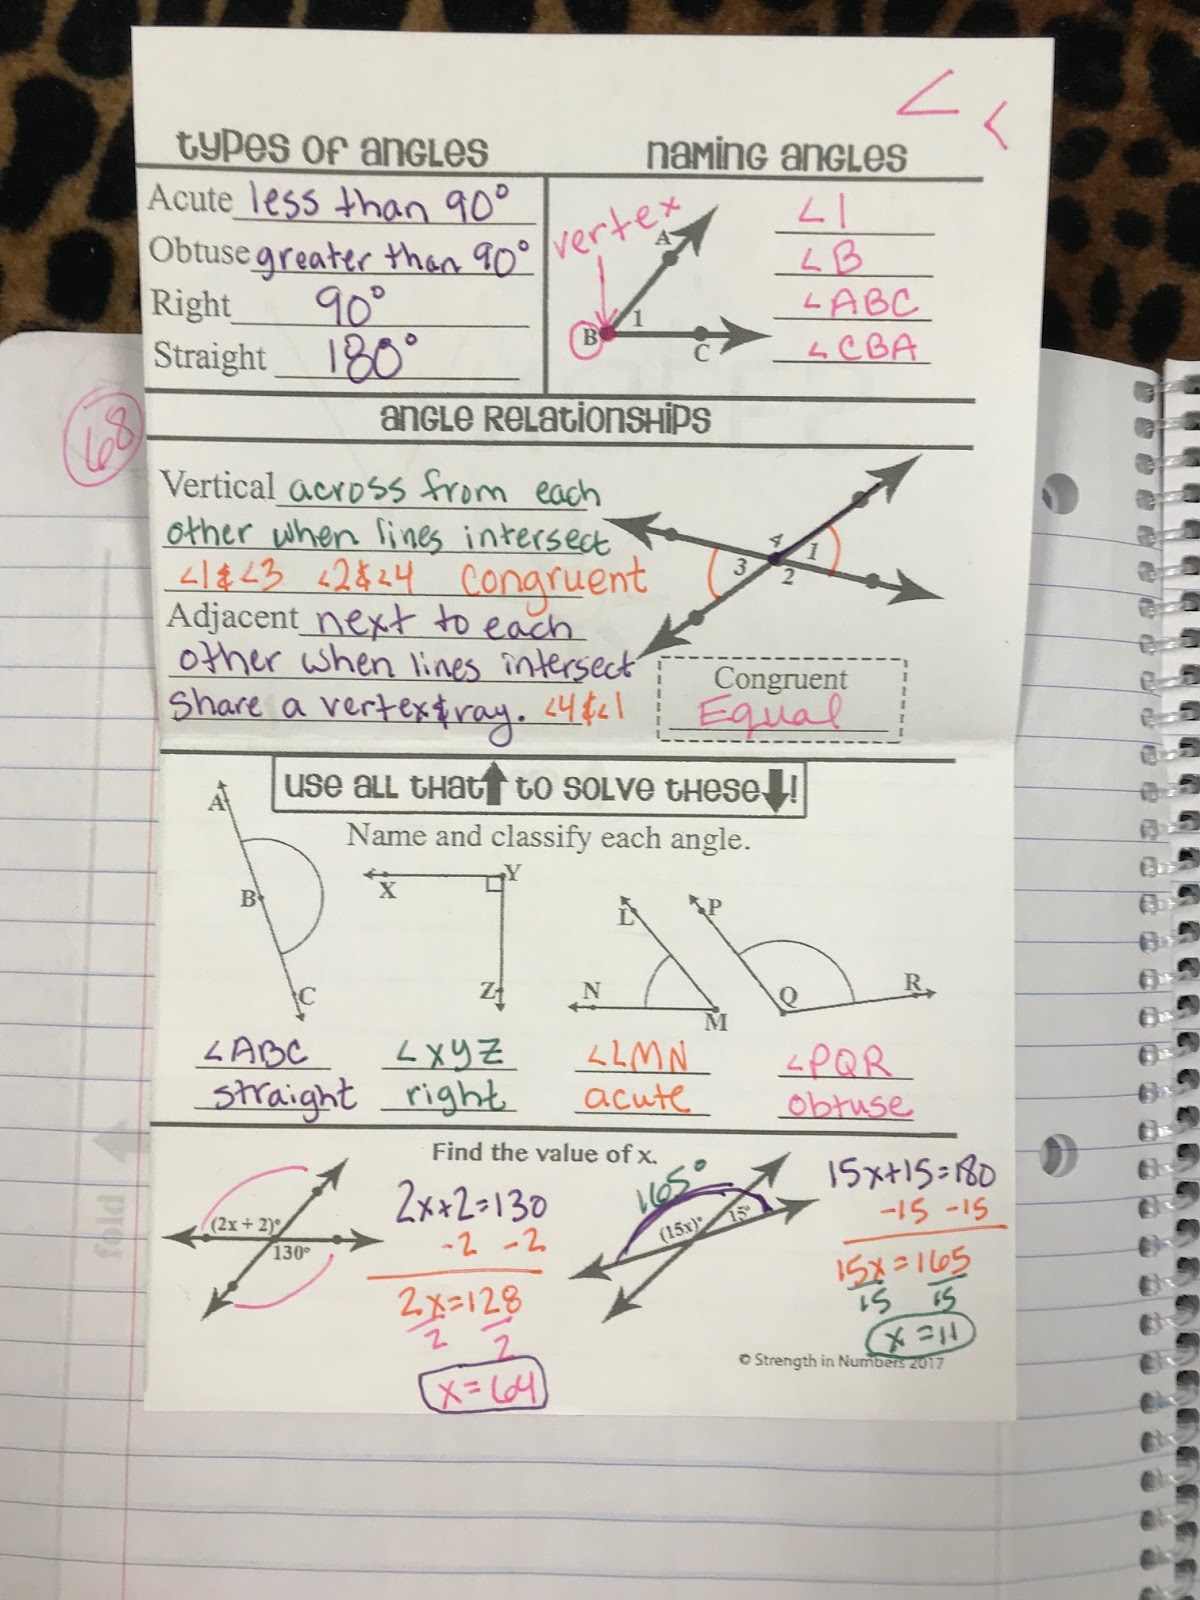 < <
types of angles
naming angles
Acute less than 90°
Obtuse greater than 90°
Right 90°
Straight 180°
vertex
A
B
1
C
∠1
∠B
∠ABC
∠CBA
68
angle relationships
Vertical across from each
other when lines intersect
∠1 & ∠3 ∠2 & ∠4 congruent
Adjacent next to each
other when lines intersect
share a vertex & ray. ∠4 & ∠1
4
1
3
2
Congruent
Equal
use all that ⬆ to solve these ⬇!
Name and classify each angle.
A
B
C
X
Y
Z
L
N
M
P
Q
R
∠ABC
straight
∠XYZ
right
∠LMN
acute
∠PQR
obtuse
Find the value of x.
(2x + 2)°
130°
2x+2=130
-2 -2
2x=128
2 2
x=64
165°
(15x)°
15°
15x+15=180
-15 -15
15x=165
15 15
x=11
© Strength in Numbers 2017
fold